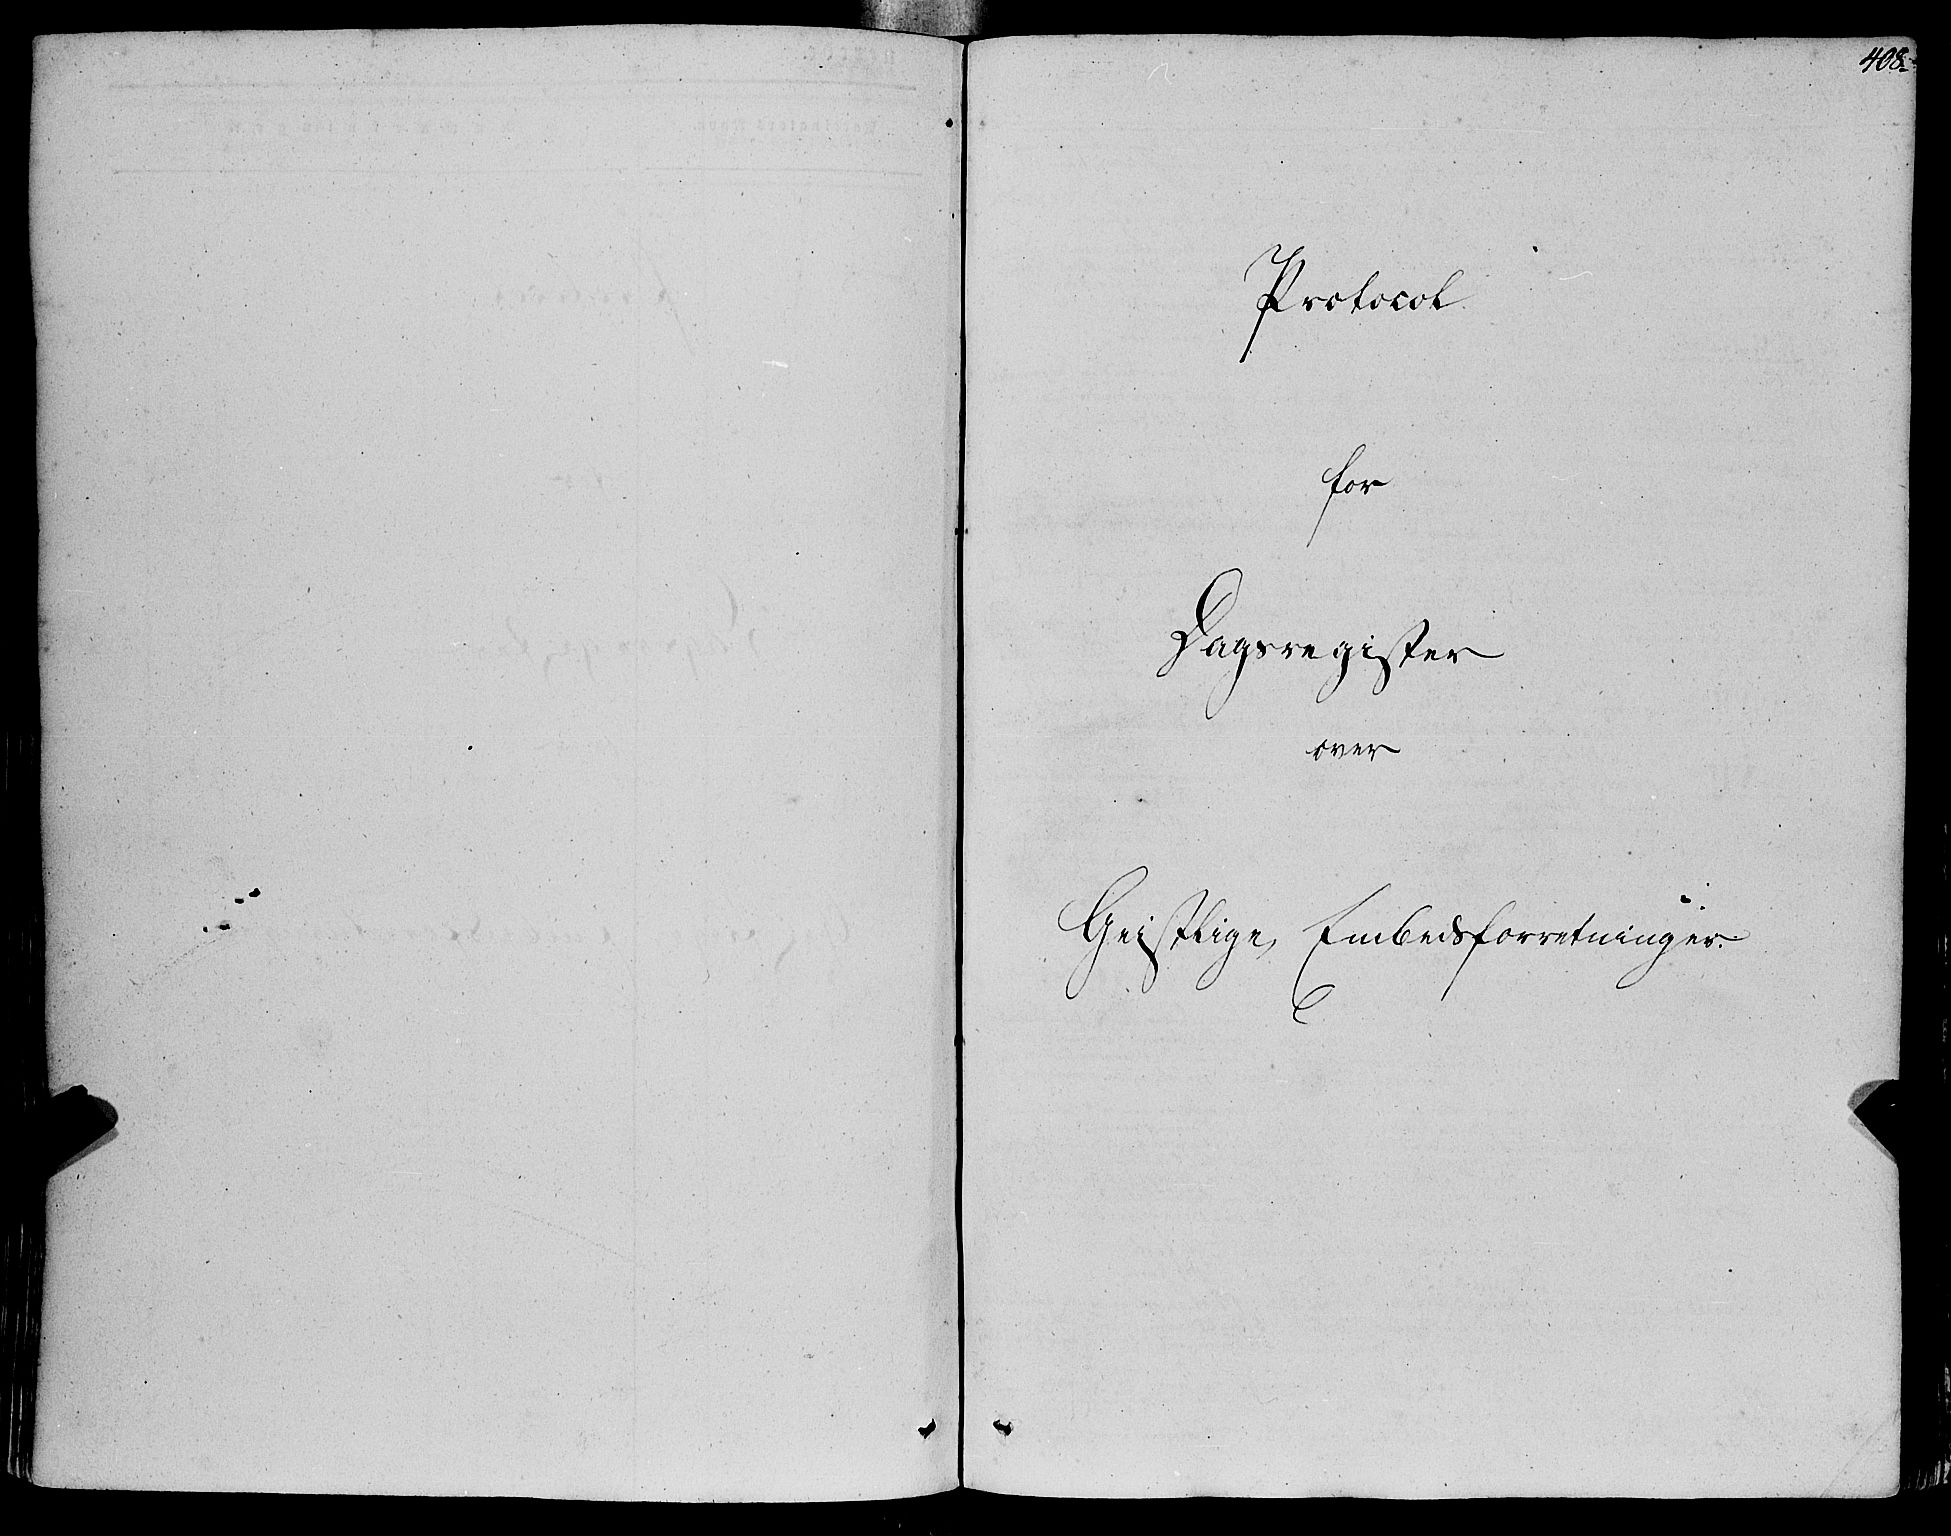 408.
Protocol
for
Dagsregister
over
Geistlige Embedsforretninger.